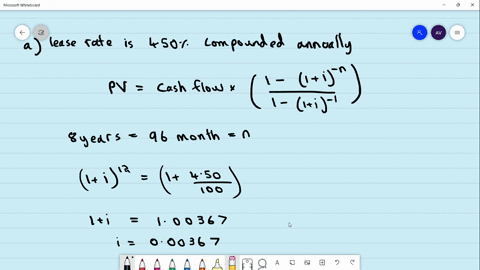 Microsoft Whiteboard
AV
a) lease rate is 4.50% compounded annually
PV = Cash flow × ( 1 - (1+i)^-n / 1 - (1+i)^-1 )
8 years = 96 month = n
(1+i)^12 = (1 + 4.50/100)
1+i = 1.00367
i = 0.00367